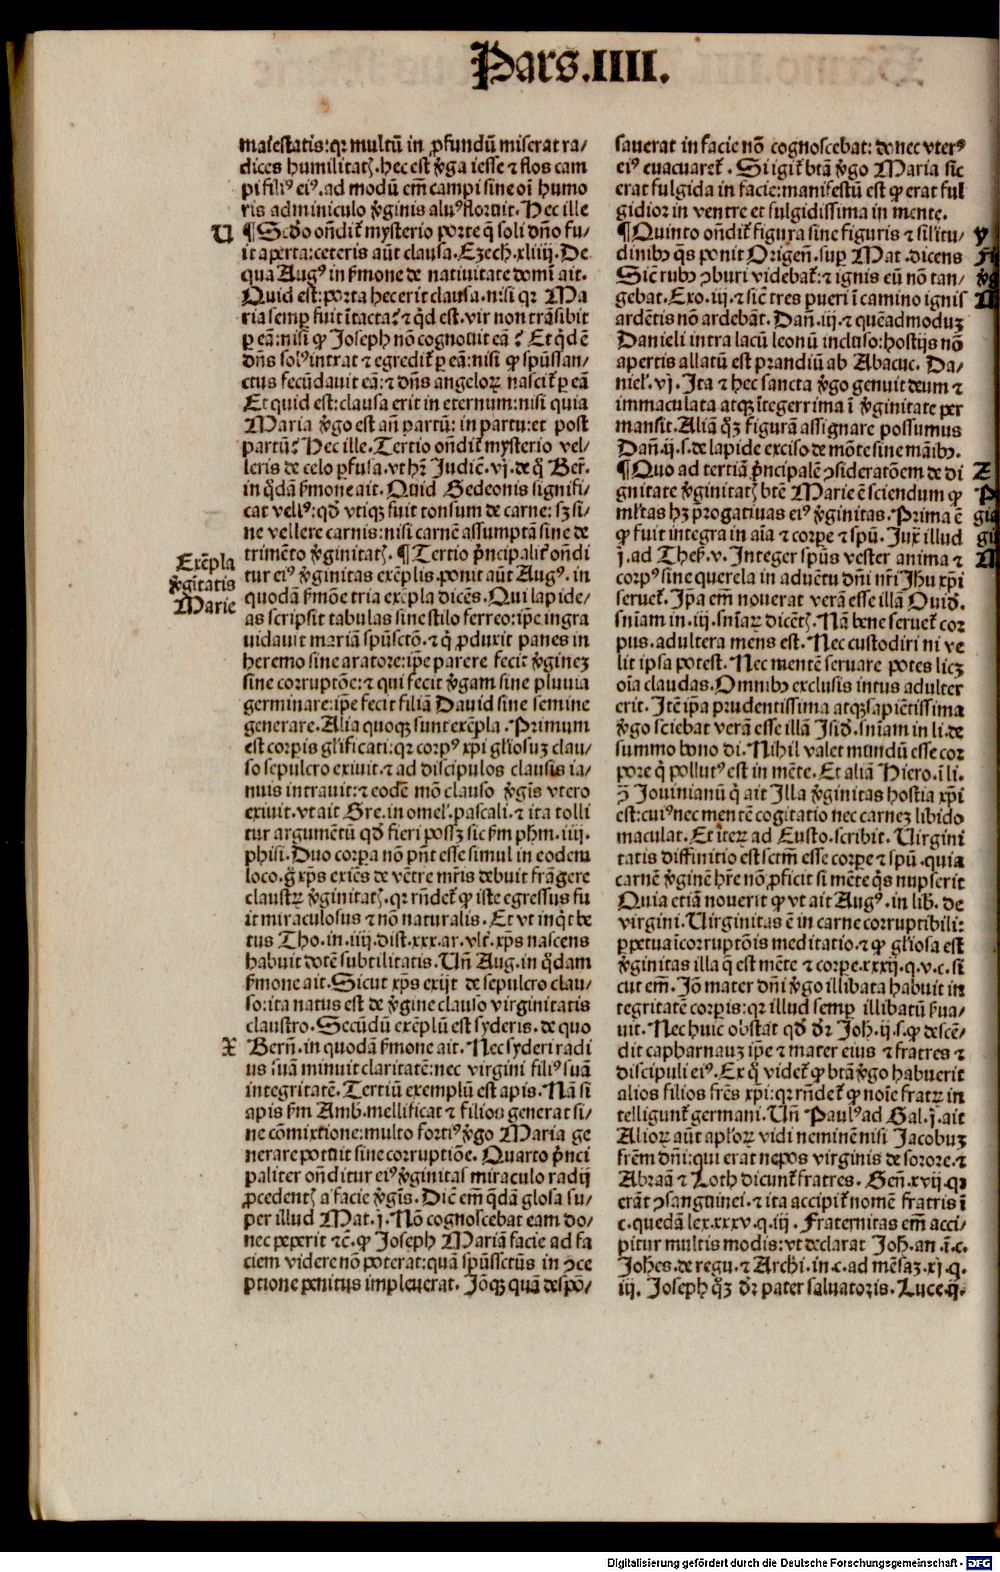 Pars.IIII.
maiestatis:qꝛ multū in ꝓfundū miserat ra/
dices humilitatꝭ.hec est v̾ga iesse ⁊ flos cam
pi filiꝰ eiꝰ.ad modū em̄ campi sine oī humo
ris adminiculo v̾ginis aluꝰ floruit. Hec ille
U
¶Scd̓o on̄dit᷑ mysterio porte q̄ soli dn̄o fu/
it aperta:ceteris aūt clausa.Ezech.xliiij.De
qua Augꝰ in ẜmone de natiuitate domi ait.
Quid est:porta hec erit clausa.nisi qꝛ Ma
ria semꝑ fuit ītacta?⁊ qd̓ est.vir non trāsibit
ꝑ eā:nisi ꝙ Joseph nō cognouit eā? Et qd̓ ē
dn̄s solꝰ intrat ⁊ egredit᷑ ꝑ eā:nisi ꝙ spūssan/
ctus fecūdauit eā:⁊ dn̄s angeloꝝ nascit᷑ ꝑ eā
Et quid est:clausa erit in eternum:nisi quia
Maria v̾go est an̄ partū: in partu:et post
partū? Hec ille.Tertio on̄dit᷑ mysterio vel/
leris de celo ꝑfusa.vt hr̄ Judic̄.vj.de q̄ Ber̄.
in qd̄ā ẜmone ait. Quid Gedeonis signifi/
cat vellꝰ:qd̓ vtiqꝫ fuit tonsum de carne:sꝫ si/
ne vellere carnis:nisi carnē assumptā sine de
trimēto v̾ginitatꝭ.¶Tertio pn̄cipalit᷑ on̄di
Exēpla
v̾gītatis
Marie
tur eiꝰ v̾ginitas exēplis.ponit aūt Augꝰ.in
quodā ẜmōe tria exēpla dicēs.Qui lapide/
as scripsit tabulas sine stilo ferreo:ip̄e ingra
uidauit mariā spūsctō.⁊ q̄ ꝓduxit panes in
heremo sine aratore:ip̄e parere fecit v̾ginez
sine corruptōe:⁊ qui fecit v̾gam sine pluuia
germinare:ip̄e fecit filiā Dauid sine semine
generare.Alia quoqꝫ sunt exēpla.Primum
est corpis glificati:qꝛ corpꝰ xp̄i gliosuz clau/
so sepulcro exiuit.⁊ ad discipulos clausis ia/
nuis intrauit:⁊ eodē mō clauso v̾gīs vtero
exiuit.vt ait Gre.in omel̓.pascali.⁊ ita tolli
tur argumētū qd̓ fieri possꝫ sic ẜm ph̄m.iiij.
phisi.Duo corpa nō pn̄t esse simul in eodem
loco.g̊ xp̄s exiēs de vētre mr̄is debuit frāgere
claustꝝ v̾ginitatꝭ.qꝛ rn̄det᷑ ꝙ iste egressus fu
it miraculosus ⁊ nō naturalis. Et vt inqͥt be
tus Tho.in.iiij.dist.xxx.ar.vlt̓.xp̄s nascens
habuit dotē subtilitatis.Un̄ Aug.in qd̄am
ẜmone ait.Sicut xp̄s exijt de sepulcro clau/
so:ita natus est de v̾gine clauso virginitatis
claustro.Secūdū exēplū est syderis.de quo
X
Bern̄.in quodā ẜmone ait. Nec syderi radi
us suā minuit claritatē:nec virgini filiꝰ suā
integritatē.Tertiū exemplū est apis.Nā si
apis ẜm Amb.mellificat ⁊ filios generat si/
ne cōmixtione:multo fortiꝰ v̾go Maria ge
nerare potuit sine corruptiōe. Quarto pn̄ci
paliter on̄ditur eiꝰ v̾ginitas miraculo radij
ꝓcedentꝭ a facie v̾gīs. Dic̄ em̄ qd̄ā glosa su/
per illud Mat.j. Nō cognoscebat eam do/
nec peperit ⁊c̄.ꝙ Joseph Mariā facie ad fa
ciem videre nō poterat:quā spūssctūs in ꝯce
ptione penitus impleuerat. Jōqꝫ quā despō/
sauerat in facie nō cognoscebat: donec vterꝰ
eiꝰ euacuaret᷑. Si igit᷑ btā v̾go Maria sic
erat fulgida in facie:manifestū est ꝙ erat ful
gidior in ventre et fulgidissima in mente.
Y
¶Quinto on̄dit᷑ figura sine figuris ⁊ silitu/
dinibꝫ q̄s ponit Origen̄.suꝑ Mat.dicens
Sic̄ rubꝫ ꝯburi videbat᷑:⁊ ignis eū nō tan/
gebat.Exo.iij.⁊ sic̄ tres pueri ī camino ignis
ardētis nō ardebāt. Dan̄.iij.⁊ quēadmoduꝫ
Danieli intra lacū leonū incluso:hostijs nō
apertis allatū est prandiū ab Abacuc. Da/
niel̓.vj. Ita ⁊ hec sancta v̾go genuit deum ⁊
immaculata atqꝫ ītegerrima ī v̾ginitate per
mansit.Aliā qͦꝫ figurā assignare possumus
Dan̄.ij.s.de lapide exciso de mōte sine māibꝫ.
Z
¶Quo ad tertiā pn̄cipalē ꝯsideratōem de di
gnitate v̾ginitatꝭ btē Marie ē sciendum ꝙ
ml̓tas hꝫ p̄rogatiuas eiꝰ v̾ginitas.Prima ē
ꝙ fuit integra in aīa ⁊ corpe ⁊ spū. Jux̄ illud
j.ad Thes̄.v. Integer spūs vester anima ⁊
corpꝰ sine querela in aduētu dn̄i nr̄i Jhu xp̄i
seruet᷑.Ip̄a em̄ nouerat verā esse illā Ouid̓.
sn̄iam in.iij.sn̄iaꝝ dicētꝭ. Nā bene seruet᷑ cor
pus.adultera mens est. Nec custodiri ni ve
lit ipsa potest. Nec mentē seruare potes licꝫ
oīa claudas.Omnibꝫ exclusis intus adulter
erit. Itē ip̄a prudentissima atqꝫ sapiētissima
v̾go sciebat verā esse illā Isid̓.sn̄iam in li.de
summo bono di. Nihil valet mundū esse cor
pore q̄ pollutꝰ est in mēte. Et aliā Hiero.ī li.
ꝯ̄ Jouinianū q̄ ait Illa v̾ginitas hostia xp̄i
est:cuiꝰ nec mentē cogitatio nec carnez libido
maculat. Et iteꝝ ad Eusto.scribit. Uirgini
tatis diffinitio est sctm̄ esse corpe ⁊ spū.quia
carnē v̾ginē hr̄e nō ꝓficit si mēte q̄s nupserit
Quia etiā nouerit ꝙ vt ait Augꝰ.in lib̓.de
virgini.Uirginitas ē in carne corruptibili:
ꝑpetua īcorruptōis meditatio.⁊ ꝙ gliosa est
v̾ginitas illa q̄ est mēte ⁊ corpe.xxxij.q.v.c.si
cut em̄. Jō mater dn̄i v̾go illibata habuit in
tegritatē corpis:qꝛ illud semꝑ illibatū ẜua/
uit. Nec huic obstat qd̓ dr̄ Joh.ij.s.ꝙ descē/
dit capharnauꝫ ip̄e ⁊ mater eius ⁊ fratres ⁊
discipuli eiꝰ. Ex q̄ videt᷑ ꝙ btā v̾go habuerit
alios filios frēs xp̄i:qꝛ rn̄det᷑ ꝙ noīe fratꝝ in
telligunt᷑ germani.Un̄ Paulꝰ ad Gal.j.ait
Alioꝝ aūt apl̓oꝝ vidi neminē nisi Jacobuꝫ
frēm dn̄i:qui erat nepos virginis de sorore.⁊
Abraā ⁊ Loth dicunt᷑ fratres. Gen̄.xvij.qꝛ
erāt ꝯsanguinei.⁊ ita accipit᷑ nomē fratris ī
c.quedā lex.xxxv.q.iij. Fraternitas em̄ acci/
pitur multis modis:vt declarat Joh.an.ī.c.
Johes.de regu.⁊ Archi.in.c.ad mēsaꝫ.xj.q.
iij. Joseph qͦꝫ dr̄ pater saluatoris. Luce.ij.
Digitalisierung gefördert durch die Deutsche Forschungsgemeinschaft - DFG